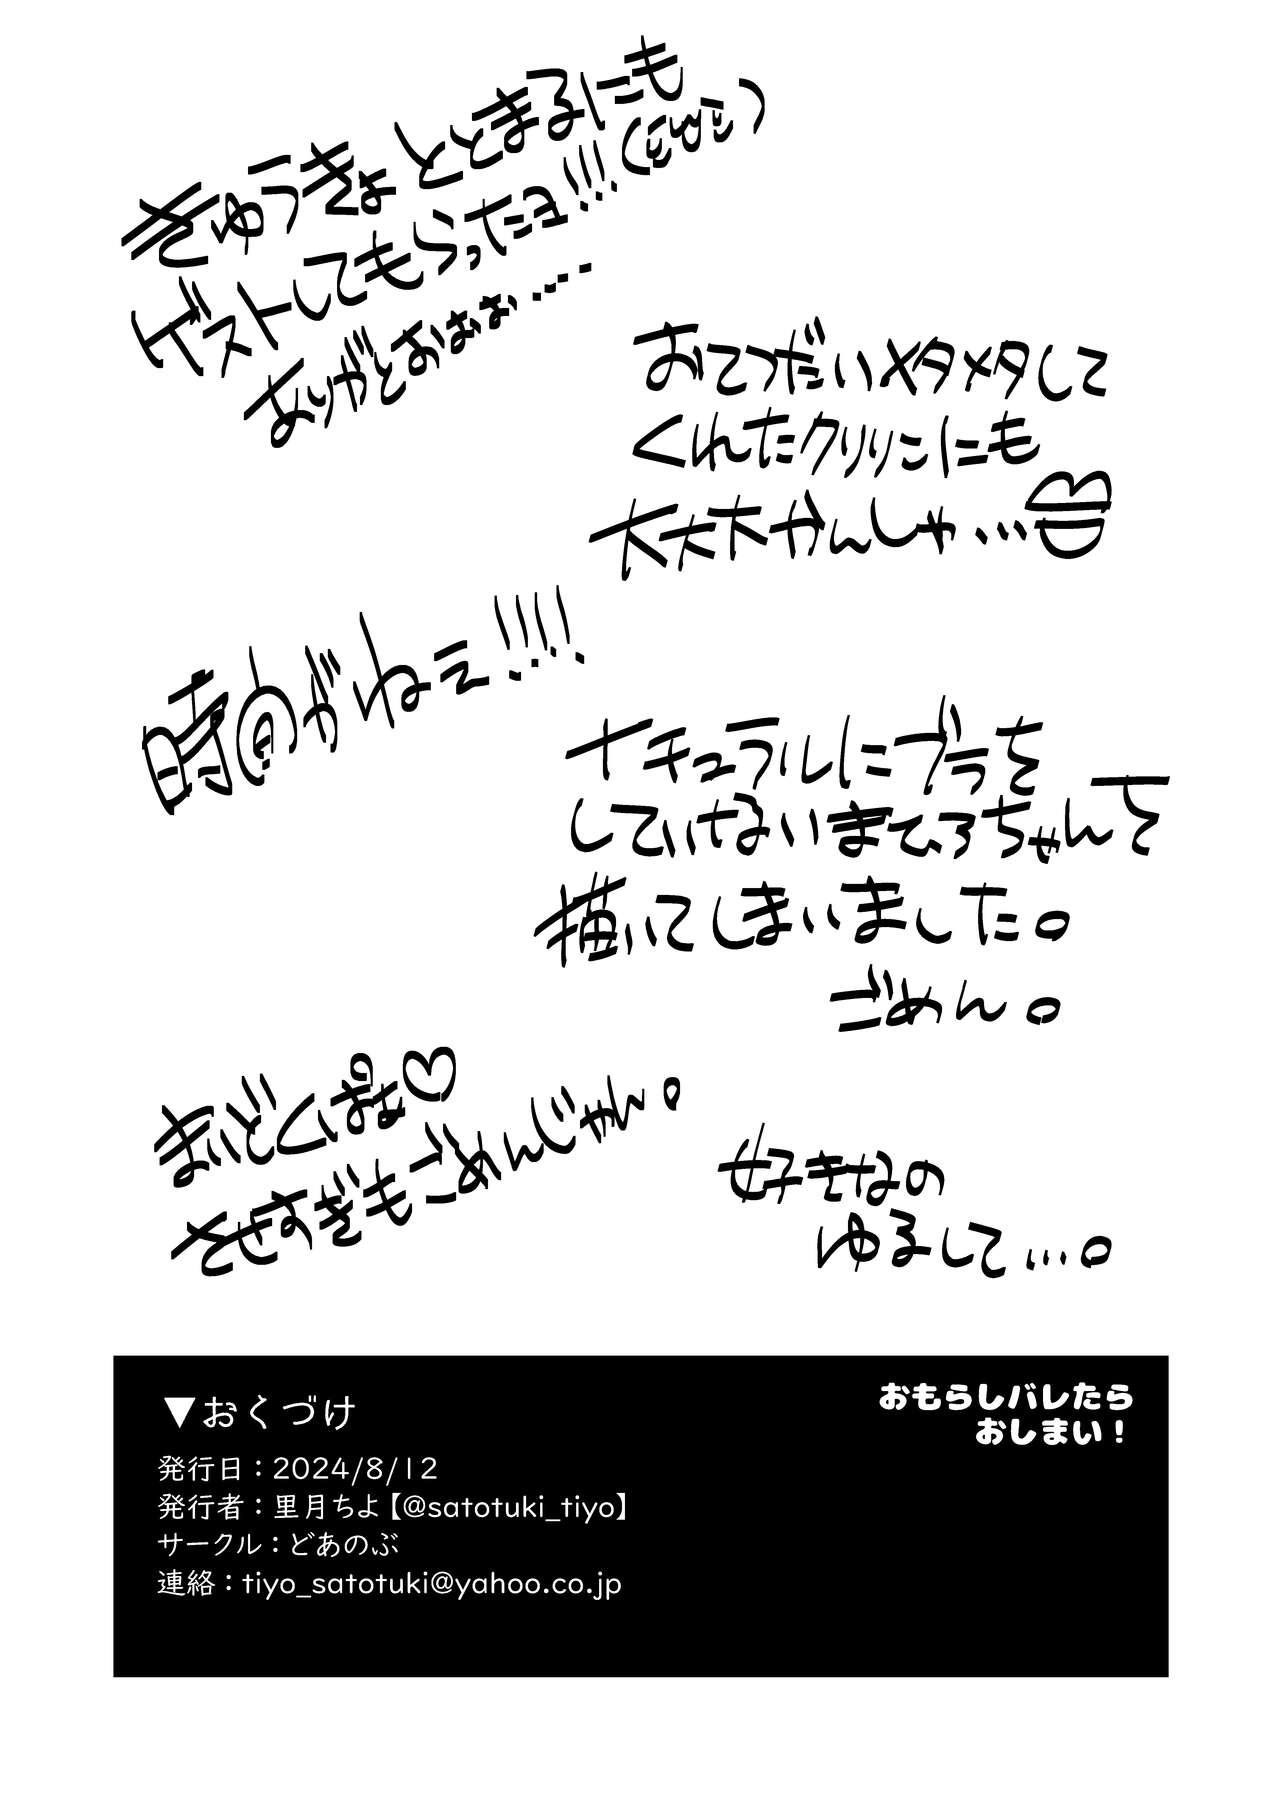 きゅうきょ ととまるにも
ゲストしてもらったョ!!!
ありがとおぉぉぉ....
おてつだいメタメタして
くれたクリリンにも
大大大かんしゃ…
時間がねェ!!!!
ナチュラルにブラを
していないまひろちゃんを
描いてしまいました。
ごめん。
まいどくぱぁ♡
させすぎもごめんじゃん。
好きなの
ゆるして…。
おもらしバレたら
おしまい！
▼おくづけ
発行日：2024/8/12
発行者：里月ちよ【@satotuki_tiyo】
サークル：どあのぶ
連絡：tiyo_satotuki@yahoo.co.jp